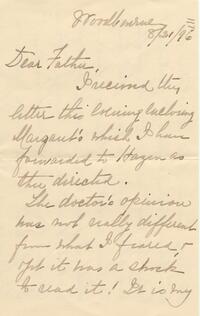 Woodbourne
8/31/96
Dear Father,
I received thy
letter this evening enclosing
Margaret's which I have
forwarded to Hazen as
thee directed.
The doctor's opinion
was not really different
from what I feared, &
yet it was a shock
to read it! It is my